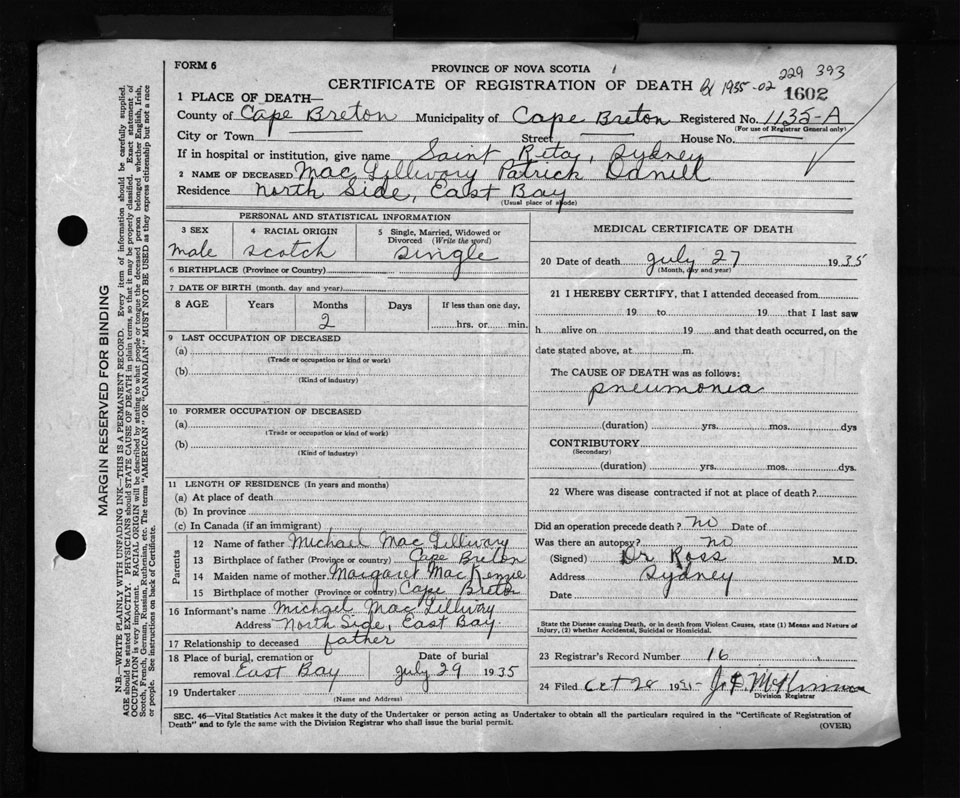 FORM 6
PROVINCE OF NOVA SCOTIA
CERTIFICATE OF REGISTRATION OF DEATH Bx 1935-02 229 393
1602
1 PLACE OF DEATH—
County of Cape Breton Municipality of Cape Breton Registered No. 1135-A
(For use of Registrar General only)
City or Town Street House No.
If in hospital or institution, give name Saint Rita, Sydney
2 NAME OF DECEASED Mac Gillivary Patrick Daniel
Residence North Side, East Bay
(Usual place of abode)
PERSONAL AND STATISTICAL INFORMATION
3 SEX male
4 RACIAL ORIGIN scotch
5 Single, Married, Widowed or Divorced (Write the word) single
6 BIRTHPLACE (Province or Country)
7 DATE OF BIRTH (month, day and year)
8 AGE Years Months Days If less than one day,
2 hrs. or min.
9 LAST OCCUPATION OF DECEASED
(a)
(Trade or occupation or kind of work)
(b)
(Kind of industry)
10 FORMER OCCUPATION OF DECEASED
(a)
(Trade or occupation or kind of work)
(b)
(Kind of industry)
11 LENGTH OF RESIDENCE (In years and months)
(a) At place of death
(b) In province
(c) In Canada (if an immigrant)
Parents
12 Name of father Michael Mac Gillivary
13 Birthplace of father (Province or country) Cape Breton
14 Maiden name of mother Margaret Mac Kenzie
15 Birthplace of mother (Province or country) Cape Breton
16 Informant's name Michael Mac Gillivary
Address North Side, East Bay
17 Relationship to deceased father
18 Place of burial, cremation or removal East Bay
Date of burial July 29 1935
19 Undertaker
(Name and Address)
MEDICAL CERTIFICATE OF DEATH
20 Date of death July 27 1935
(Month, day and year)
21 I HEREBY CERTIFY, that I attended deceased from
19 to 19 that I last saw
h alive on 19 and that death occurred, on the
date stated above, at m.
The CAUSE OF DEATH was as follows:
pneumonia
(duration) yrs. mos. dys
CONTRIBUTORY
(Secondary)
(duration) yrs. mos. dys.
22 Where was disease contracted if not at place of death?
Did an operation precede death? no Date of
Was there an autopsy? no
(Signed) Dr Ross M.D.
Address Sydney
Date
State the Disease causing Death, or in death from Violent Causes, state (1) Means and Nature of
Injury, (2) whether Accidental, Suicidal or Homicidal.
23 Registrar's Record Number 16
24 Filed Oct 28 1935
Division Registrar
SEC. 46—Vital Statistics Act makes it the duty of the Undertaker or person acting as Undertaker to obtain all the particulars required in the "Certificate of Registration of
Death" and to fyle the same with the Division Registrar who shall issue the burial permit.
(OVER)
MARGIN RESERVED FOR BINDING
N.B.—WRITE PLAINLY WITH UNFADING INK—THIS IS A PERMANENT RECORD. Every item of information should be carefully supplied.
AGE should be stated EXACTLY. PHYSICIANS should STATE CAUSE OF DEATH in plain terms, so that it may be properly classified. Exact statement of
OCCUPATION is very important. RACIAL ORIGIN will be described by stating to what people or tongue the deceased person belonged whether English, Irish,
Scotch, French, German, Russian, Ruthenian, etc. The terms "AMERICAN" OR "CANADIAN" MUST NOT BE USED as they express citizenship but not a race
or people. See instructions on back of Certificate.